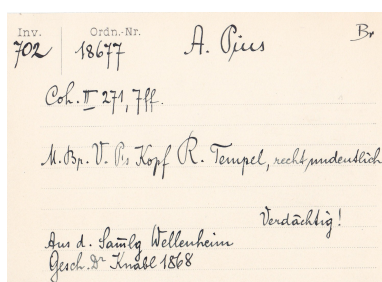 Inv. Ordn.-Nr. A. Pius Br
702 18677
Coh. II 271, 7ff.
M. Br. V. Ps Kopf R. Tempel, recht undeutlich
Verdächtig!
Aus d. Sam̅lg Wellenheim
Gesch. Dr Knabl 1868